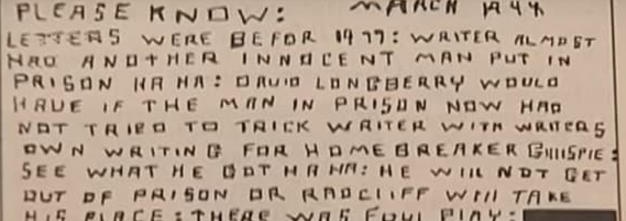 PLEASE KNOW: MARCH 1994
LETTERS WERE BEFOR 1977: WRITER ALMOST
HAD ANOTHER INNOCENT MAN PUT IN
PRISON HA HA: DAVID LONGBERRY WOULD
HAVE IF THE MAN IN PRISON NOW HAD
NOT TRIED TO TRICK WRITER WITH WRITERS
OWN WRITING FOR HOMEBREAKER GILLISPIE:
SEE WHAT HE GOT HA HA: HE WILL NOT GET
OUT OF PRISON OR RADCLIFF WILL TAKE
HIS PLACE: THERE WAS FOUL PLAY: